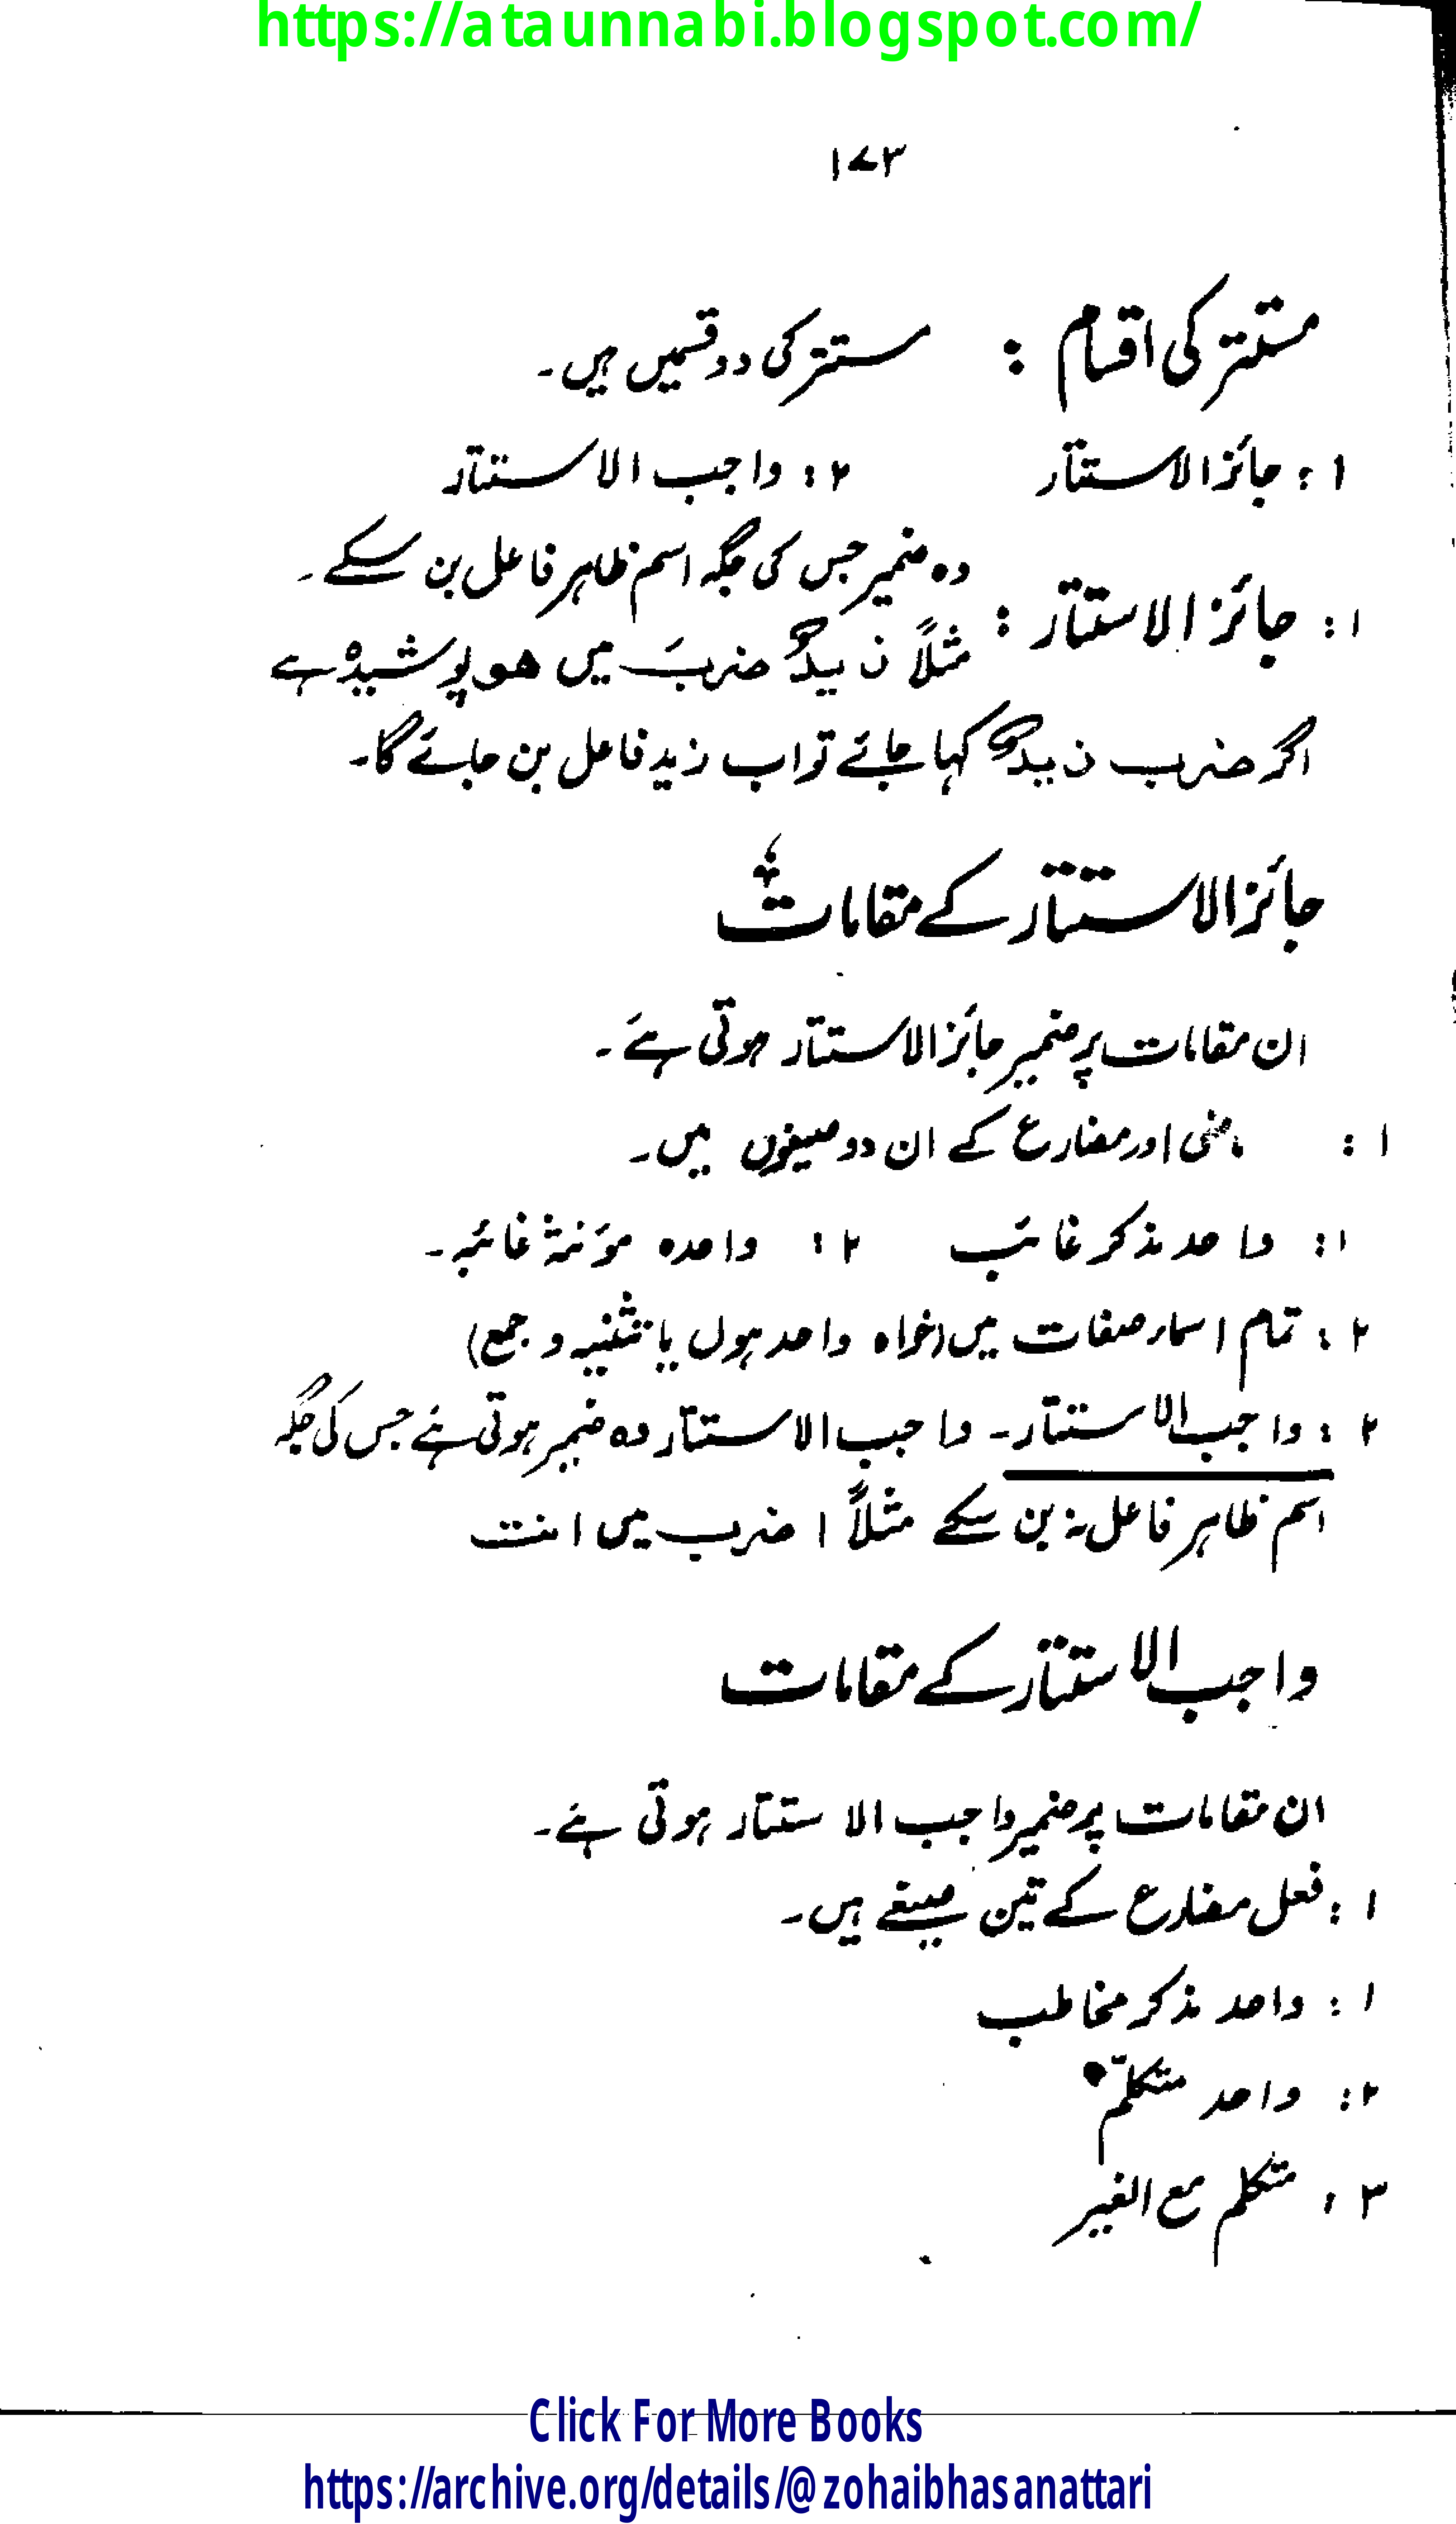 https://ataunnabi.blogspot.com/
۱۷۳
مستتر کی اقسام : مستتر کی دو قسمیں ہیں۔
۱ : جائز الاستتار ۲ : واجب الاستتار
۱ : جائز الاستتار : وہ ضمیر جس کی جگہ اسم ظاہر فاعل بن سکے۔
مثلاً زیدٌ ضربَ میں ھو پوشیدہ ہے
اگر ضرب زیدٌ کہا جائے تو اب زید فاعل بن جائے گا۔
جائز الاستتار کے مقامات
ان مقامات پر ضمیر جائز الاستتار ہوتی ہے۔
۱ : ماضی اور مضارع کے ان دو صیغوں میں۔
۱ : واحد مذکر غائب ۲ : واحدہ مؤنثۃ غائبہ۔
۲ : تمام اسماء صفات میں (خواہ واحد ہوں یا تثنیہ و جمع)
۲ : واجب الاستتار۔ واجب الاستتار وہ ضمیر ہوتی ہے جس کی جگہ
اسم ظاہر فاعل نہ بن سکے مثلاً اضرب میں انت
واجب الاستتار کے مقامات
ان مقامات پر ضمیر واجب الاستتار ہوتی ہے۔
۱ : فعل مضارع کے تین صیغے ہیں۔
۱ : واحد مذکر مخاطب
۲ : واحد متکلّم
۳ : متکلم مع الغیر
Click For More Books
https://archive.org/details/@zohaibhasanattari